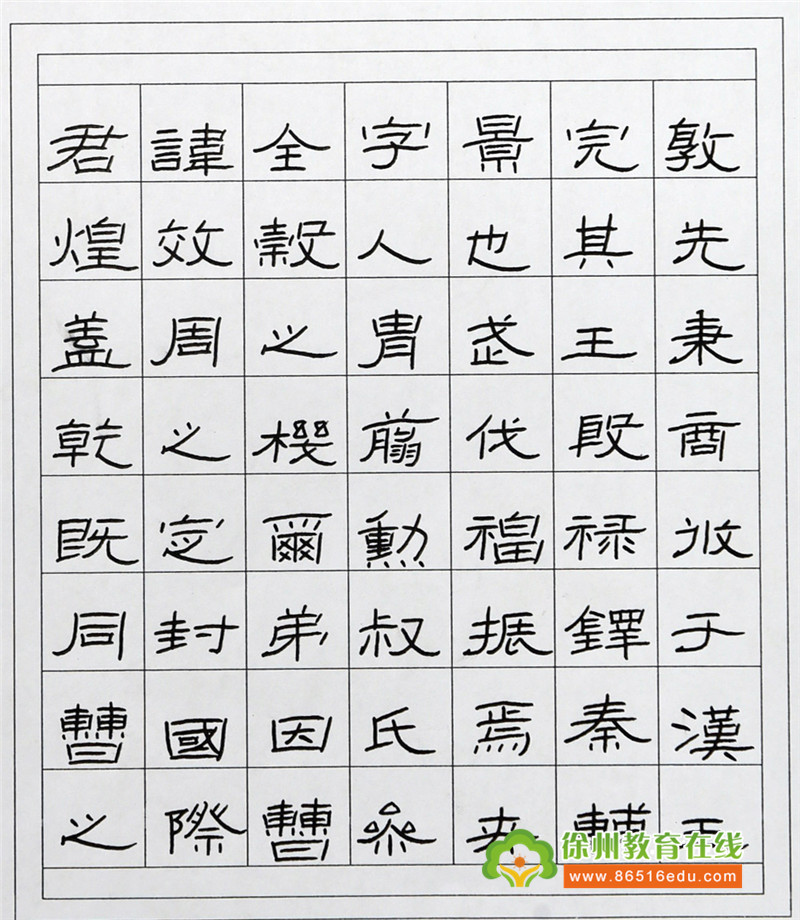 君諱全字景完敦
煌效穀人也其先
蓋周之胄武王秉
乾之機翦伐殷商
既定爾勳福祿攸
同封弟叔振鐸于
曹國因氏焉秦漢
之際曹參夾輔王
徐州教育在线
www.86516edu.com